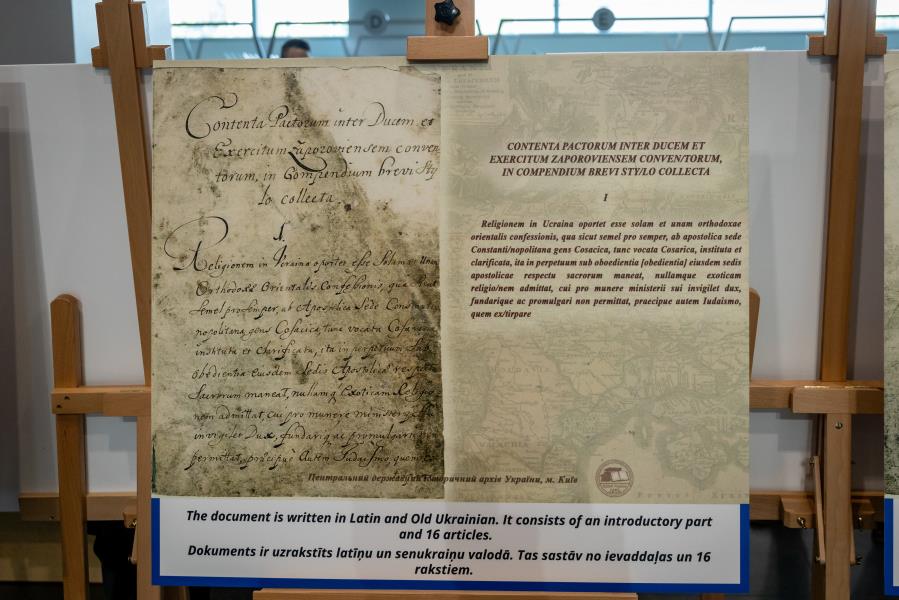 D
E
Contenta Pactorum inter Ducem et
Exercitum Zaporoviensem conven
torum, in Compendium brevi Sty
lo collecta.
1.
Religionem in Ucraina oportet esse Solam et Unam
Orthodoxæ Orientalis Confessionis, qua sicut
Semel pro semper, ab Apostolica Sede Constanti
nopolitana gens Cosacica, tunc vocata Cosarica
instituta et clarificata, ita in perpetuum Sub
obedientia eiusdem Sedis Apostolicæ respectu
Sacrorum maneat, nullamq Exoticam Religio
nem admittat, cui pro munere ministerii
invigilet Dux, fundariq ac promulgari non
permittat, præcipue Autem Iudaismo, quem
CONTENTA PACTORUM INTER DUCEM ET
EXERCITUM ZAPOROVIENSEM CONVEN/TORUM,
IN COMPENDIUM BREVI STY/LO COLLECTA
I
Religionem in Ucraina oportet esse solam et unam orthodoxae
orientalis confessionis, qua sicut semel pro semper, ab apostolica sede
Constanti/nopolitana gens Cosacica, tunc vocata Cosarica, instituta et
clarificata, ita in perpetuum sub oboedientia [obedientia] eiusdem sedis
apostolicae respectu sacrorum maneat, nullamque exoticam
religio/nem admittat, cui pro munere ministerii sui invigilet dux,
fundarique ac promulgari non permittat, praecipue autem Iudaismo,
quem ex/tirpare
Центральний державний історичний архів України, м. Київ
The document is written in Latin and Old Ukrainian. It consists of an introductory part
and 16 articles.
Dokuments ir uzrakstīts latīņu un senukraiņu valodā. Tas sastāv no ievaddaļas un 16
rakstiem.